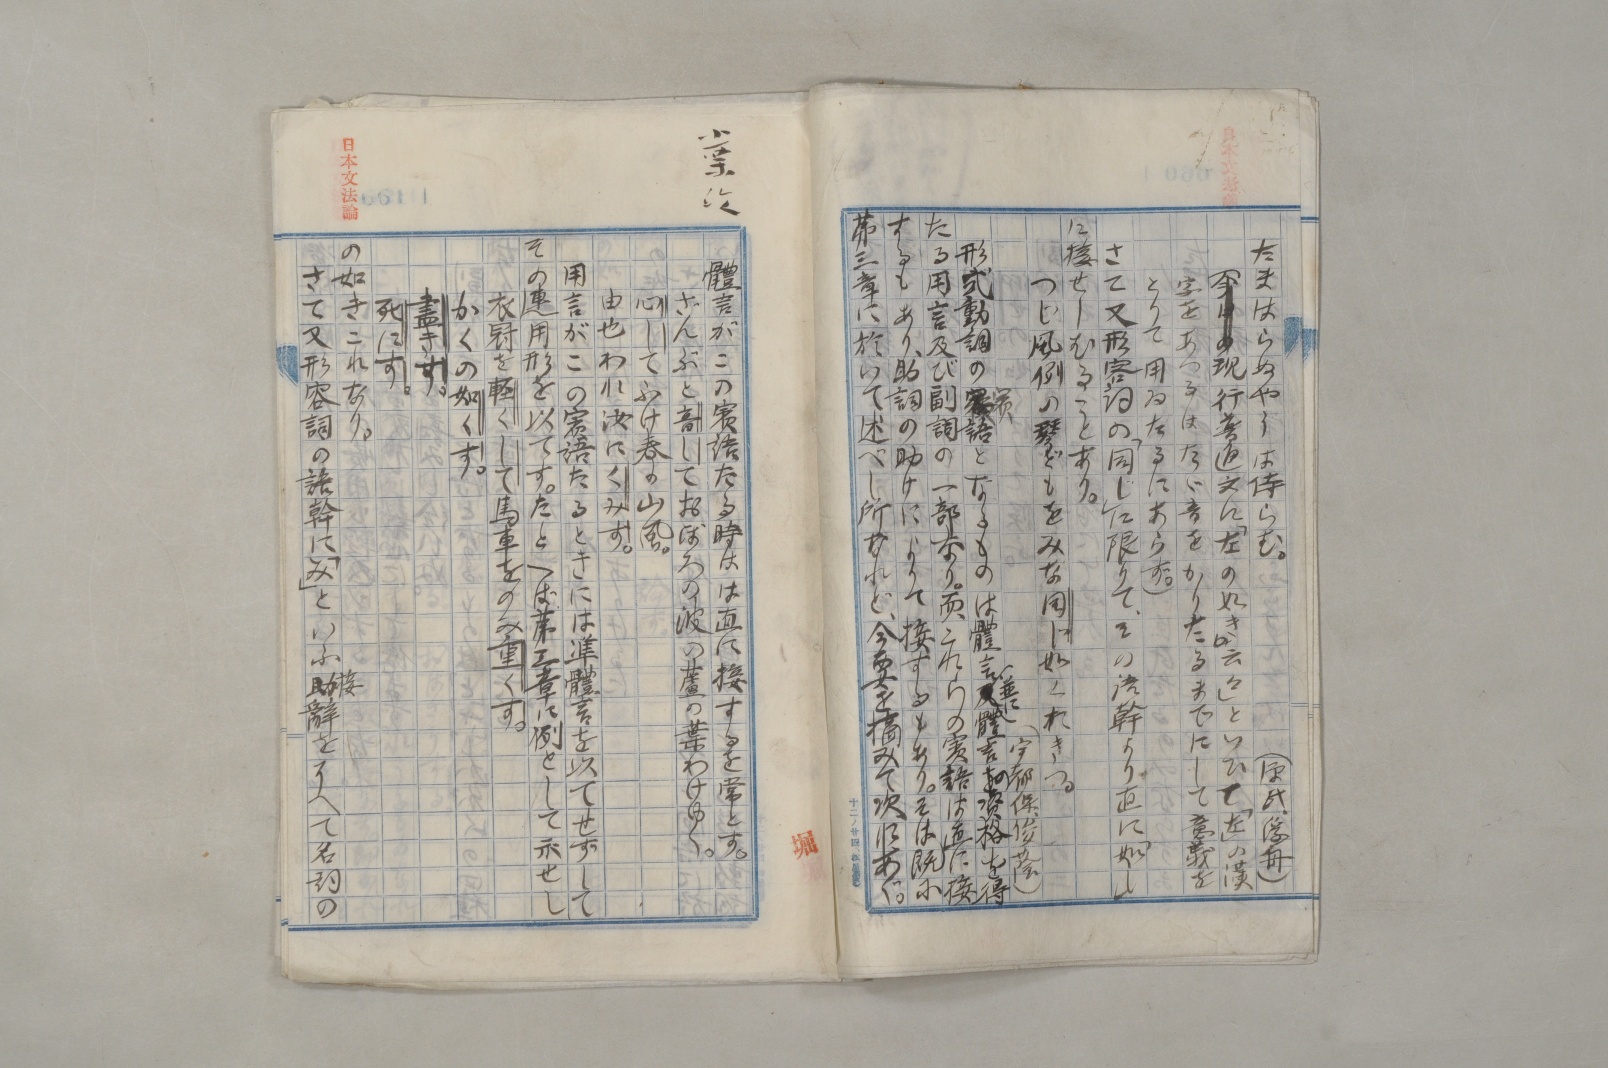 たまはらぬやうは侍らむ。
(源氏、浮舟)
今日の現行普通文に「左の如き云々」といひて「左」の漢
字をあつるはたゞ音をかりたるまでにして意義を
とりて用ゐたるにあらず。)
さて又形容詞の「同じ」に限りて、その語幹より直に「如し」
に接せしむることあり。
つじ風例の琴どもをみな同じ如くおきつ
(宇都保俊蔭)
形式動詞の賓語となるものは體言並に體言の資格を得
たる用言及び副詞の一部なり。而これらの賓語は直に接
するもあり、助詞の助けによりて接するもあり。そは既に
第三章に於いて述べし所なれど、今要を摘みて次にあぐ。
堀
日本文法論
體言がこの賓語たる時は直に接するを常とす。
ざんぶと音しておぼろの波の蘆の葉わけゆく。
心してふけ春の山風。
由也われ汝にくみす。
用言がこの賓語たるときには準體言を以てせずして
その連用形を以てす。たとへば第三章に例として示せし
衣冠を軽くして馬車をのみ重くす。
かくの如くす。
盡きす。
死にす。
の如きこれなり。
さて又形容詞の語幹に「み」といふ接辭をそへて名詞の